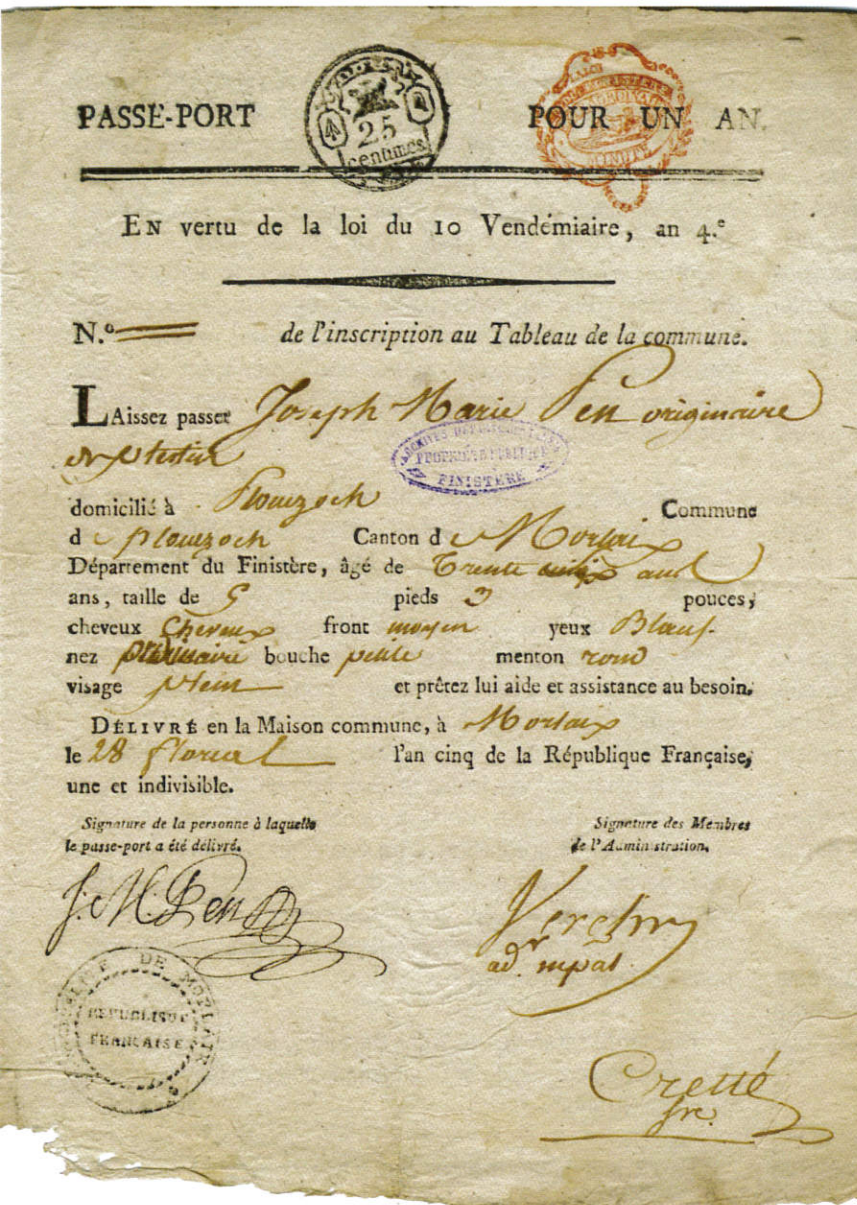 PASSE-PORT POUR UN AN.
25
centimes
MINUTE
EN vertu de la loi du 10 Vendémiaire, an 4.e
N.o de l'inscription au Tableau de la commune.
LAissez passer Joseph Marie Pen originaire
ARCHIVES DEPARTEMENTALES
PROPRIÉTÉ PUBLIQUE
FINISTERE
domicilié à Plouezoch Commune
d e Plouezoch Canton d e Morlaix
Département du Finistère, âgé de Trente
ans, taille de 5 pieds 3 pouces,
cheveux Cheveux front moyen yeux Bleus
nez bouche petite menton rond
visage plein et prêtez lui aide et assistance au besoin.
DÉLIVRÉ en la Maison commune, à Morlaix
le 28 floreal l'an cinq de la République Française,
une et indivisible.
Signature de la personne à laquelle
le passe-port a été délivré.
Signature des Membres
de l'Administration.
J. M. Pen
ad.r mpal
DE MORLAIX
REPUBLIQUE
FRANCAISE
Cretté